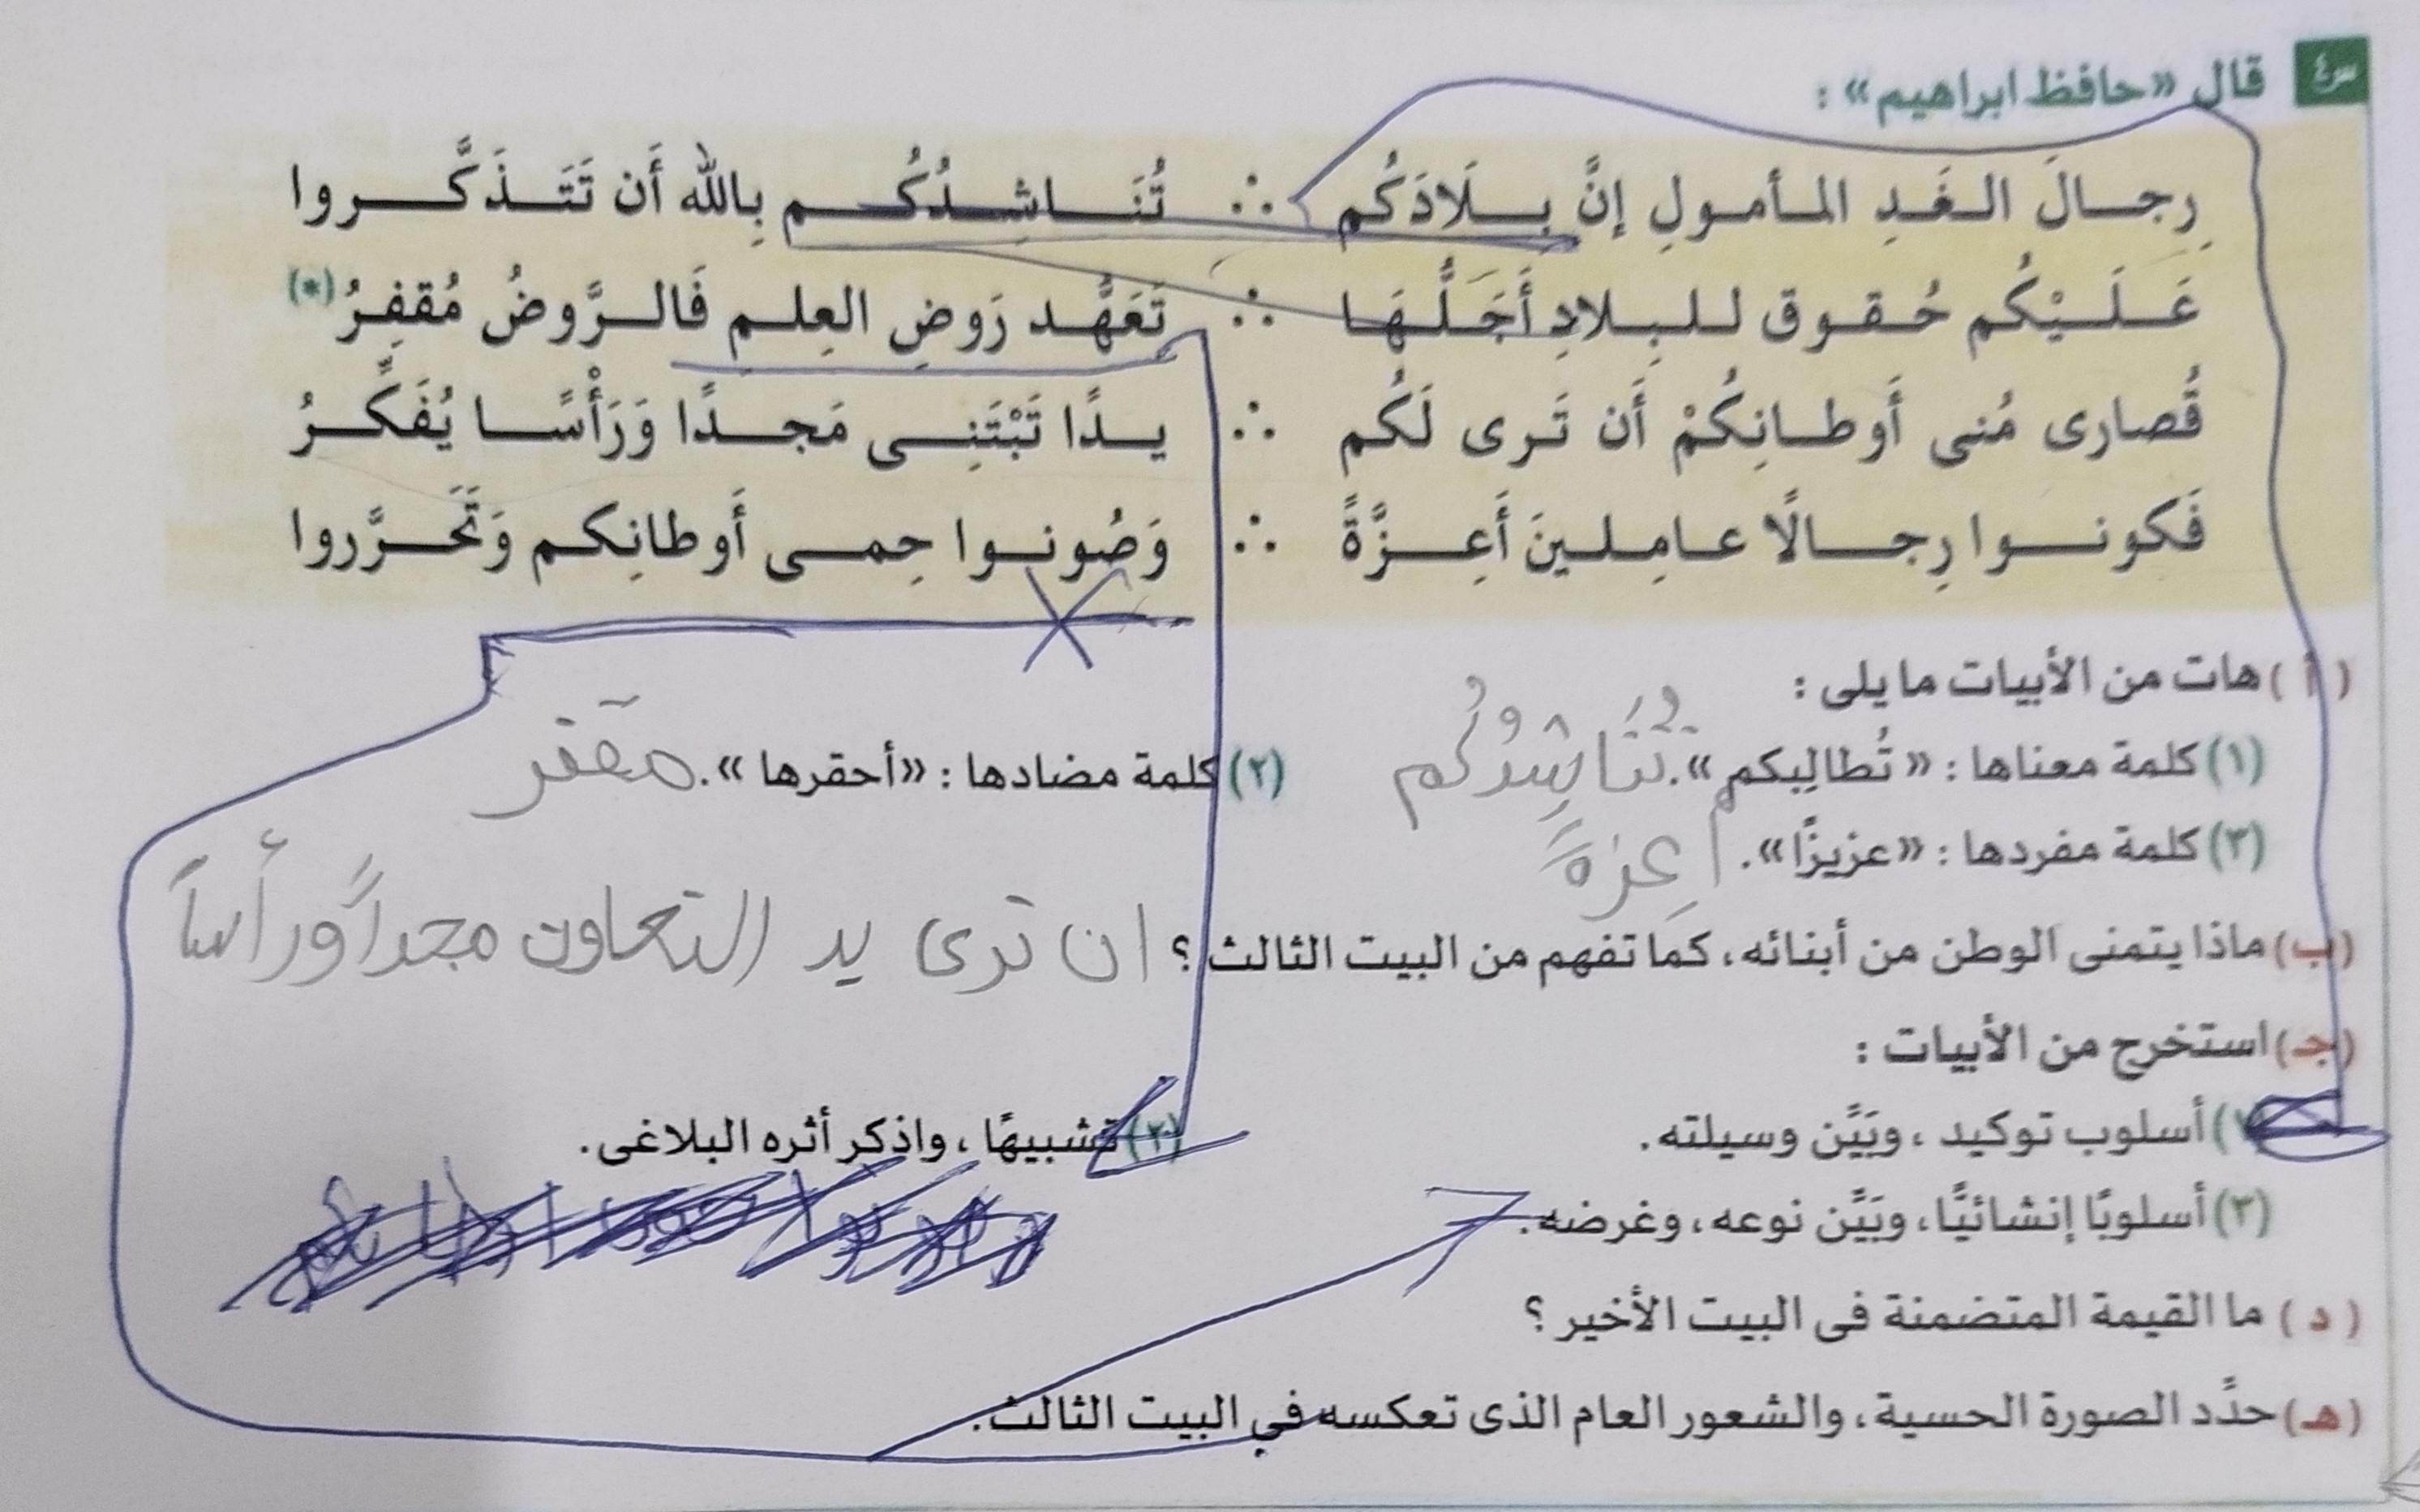 س٤ قال «حافظ ابراهيم» :
رِجـالَ الـغَـدِ المـأمـولِ إنَّ بِـلَادَكُم ∴ تُنَـاشِـدُكُـم بِالله أَن تَتَـذَكَّـروا
عَـلَـيْكُم حُـقـوق لـلـبِـلادِ أَجَـلُّـهَـا ∴ تَعَهُّـد رَوضِ العِلـمِ فَالـرَّوضُ مُقفِـرُ (*)
قُصارى مُنى أَوطـانِكُمْ أَن تَـرى لَكُم ∴ يـدًا تَبْتَنِـى مَجـدًا وَرَأْسًـا يُفَكِّـرُ
فَكونـوا رِجـالًا عـامِـلـينَ أَعِـزَّةً ∴ وَصُونـوا حِمـى أَوطانِكـم وَتَحَـرَّروا
( أ ) هات من الأبيات ما يلى :
(١) كلمة معناها : «تُطالِبكم». تُنَاشِدُكُم (٢) كلمة مضادها : «أحقرها». مقفر
(٣) كلمة مفردها : «عزيزًا». اعزةً
(ب) ماذا يتمنى الوطن من أبنائه، كما تفهم من البيت الثالث ؟ ان ترى يد التعاون مجداً ورأساً
(جـ) استخرج من الأبيات :
(١) أسلوب توكيد ، وبَيِّن وسيلته. (٢) تشبيهًا ، واذكر أثره البلاغى.
(٣) أسلوبًا إنشائيًّا، وبَيِّن نوعه، وغرضه.
( د ) ما القيمة المتضمنة فى البيت الأخير ؟
(هـ) حدِّد الصورة الحسية، والشعور العام الذى تعكسه في البيت الثالث.